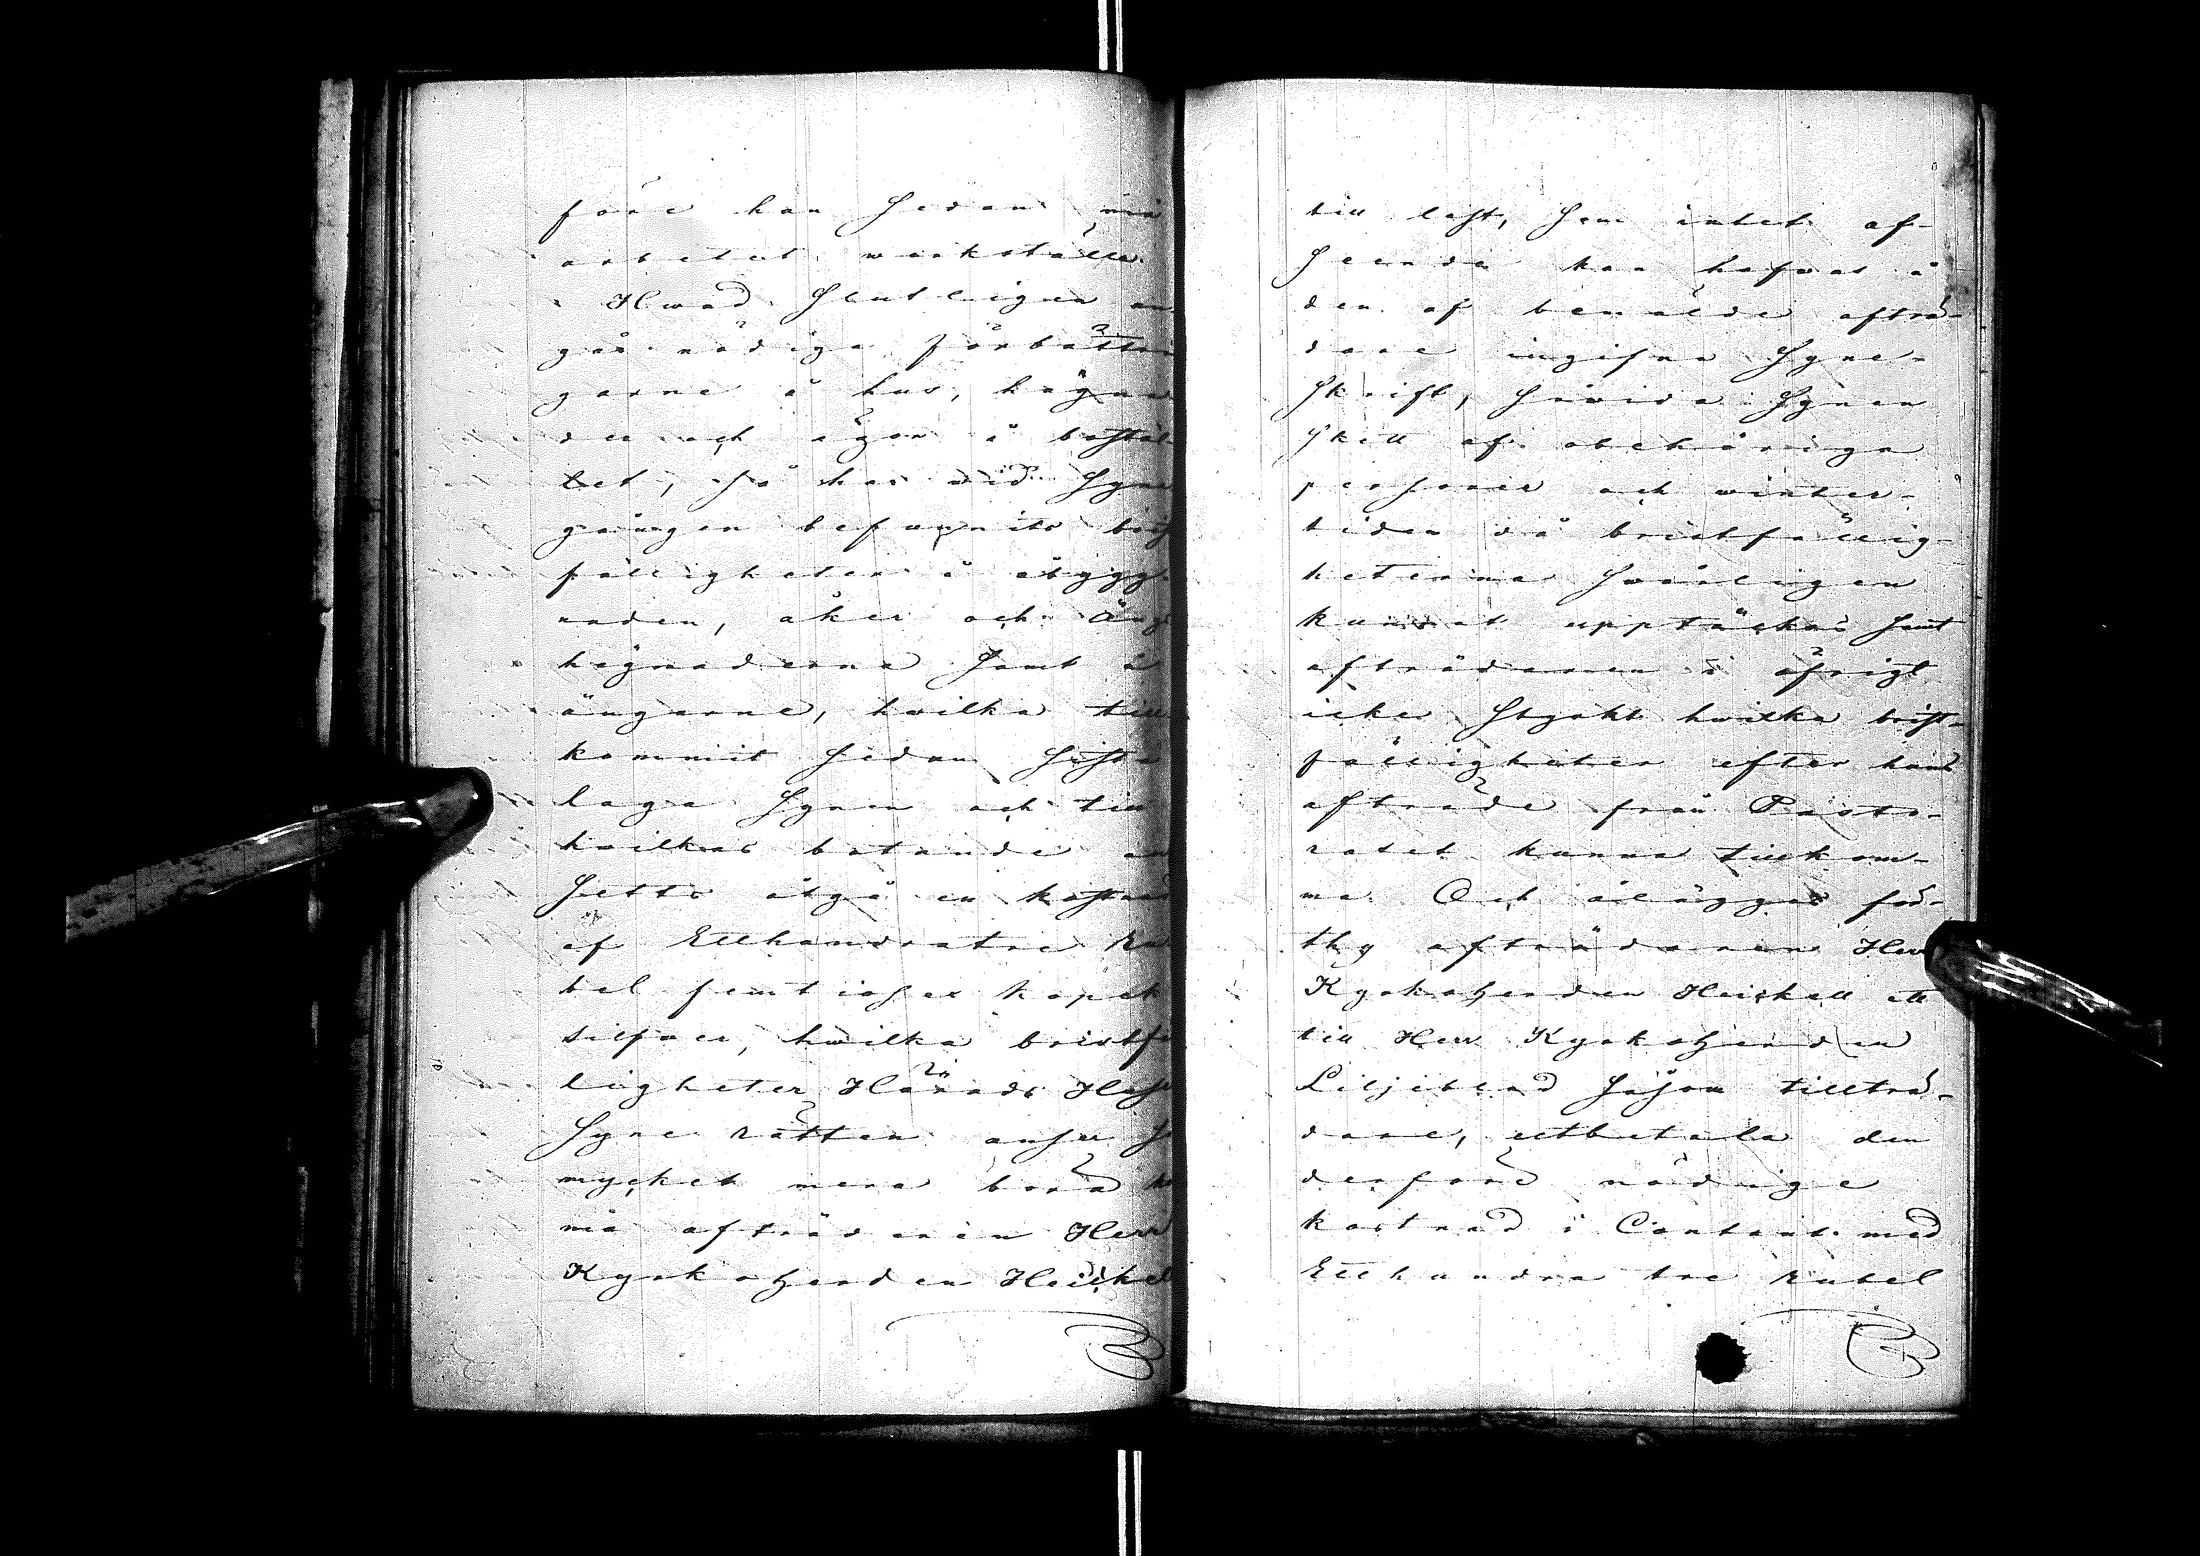 före han sedan må
arbetet werkställa.
Hwad slutligen an
går nödiga förbättri
garne å hus, hägna
der och ägor å bostäl
let, så har wid Syne
gången befunnits brist
fälligheter å åbygg
naden, åker och Äng
hägnaderna samt å
ängarne, hwilka till
kommit sedan sista
laga Synen och till
hwilkas botande an
setts åtgå en kostnad
af Etthundratre Ru
bel femtiosex kopek
silfver, hwilka bristfä
ligheter Härads Hus
Syne Rätten anser så
mycket mera böra kom
ma afträdaren Herr
Kyrkoherden Heickell
till last, som intet af-
seende kan hafvas å
den af bemälde afträ-
dare ingifna Syne-
Skrift, såwida Synen
skett af obehöriga
personer och winter-
tiden då bristfällig-
heterna swårligen
kunnat upptäckas samt
afträdaren i öfrigt
icke styrkt hwilka brist-
fälligheter efter hans
afträde från Pasto-
ratet kunna tillkom-
ma. Och ålägges för-
thy afträdaren Herr
Kyrkoherden Heickell att
till Herr Kyrkoherden
Liljeblad såsom tillträ-
dare, utbetala den
derföre nödige
kostnad i Contant med
Etthundra tre Rubel